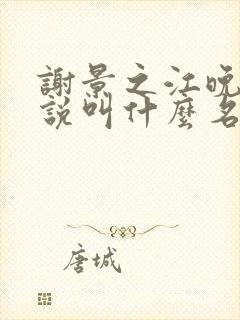 謝景之江晚
說叫什麼名
唐城